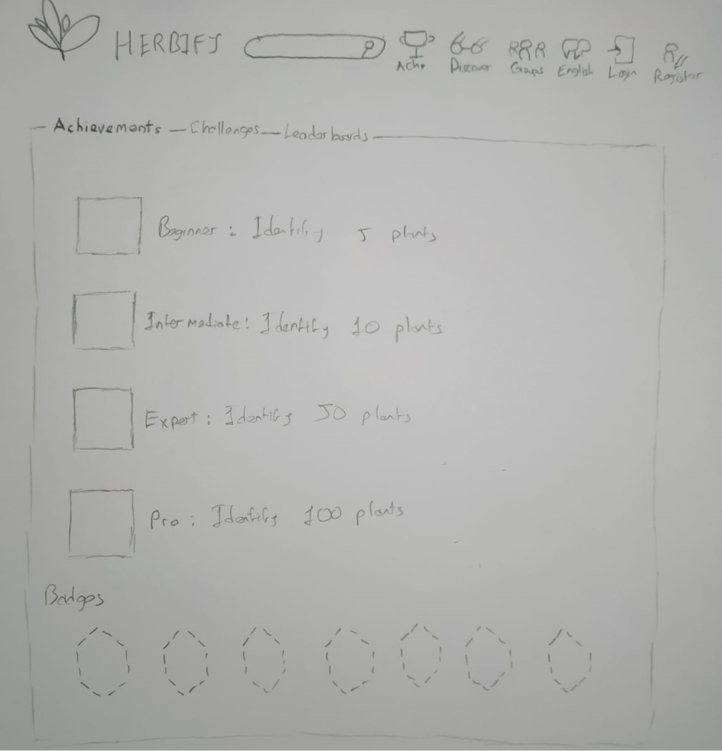 HERBIFY
Ach. Discover Groups English Login Register
Achievements Challenges Leaderboards
Beginner: Identify 5 plants
Intermediate: Identify 10 plants
Expert: Identify 50 plants
Pro: Identify 100 plants
Badges